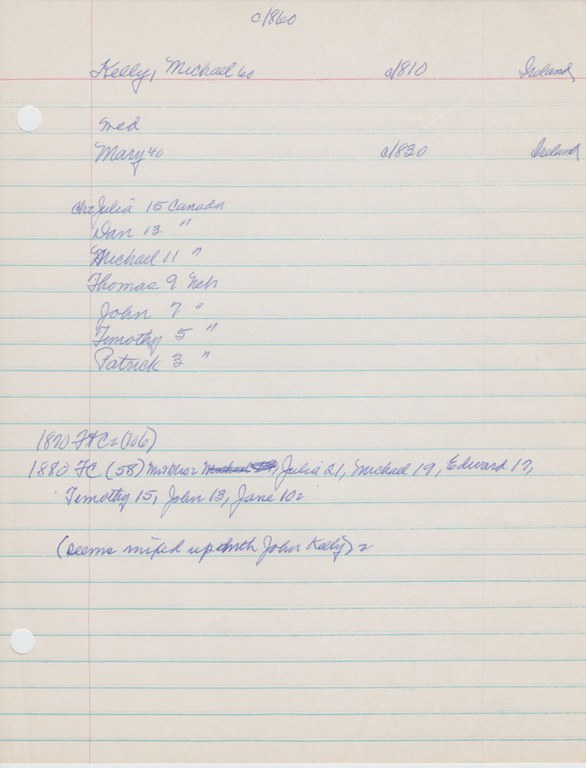 c/860
Kelly, Michael 60 c/810 Ireland
med
Mary 40 c/830 Ireland
ch: Julia 15 Canada
Dan 13 "
Michael 11 "
Thomas 9 Neb
John 7 "
Timothy 5 "
Patrick 3 "
1870 FHC (106)
1880 FC (58) Mother Julia 21, Michael 19, Edward 17,
Timothy 15, John 13, Jane 10
(seems mixed up with John Kelly)